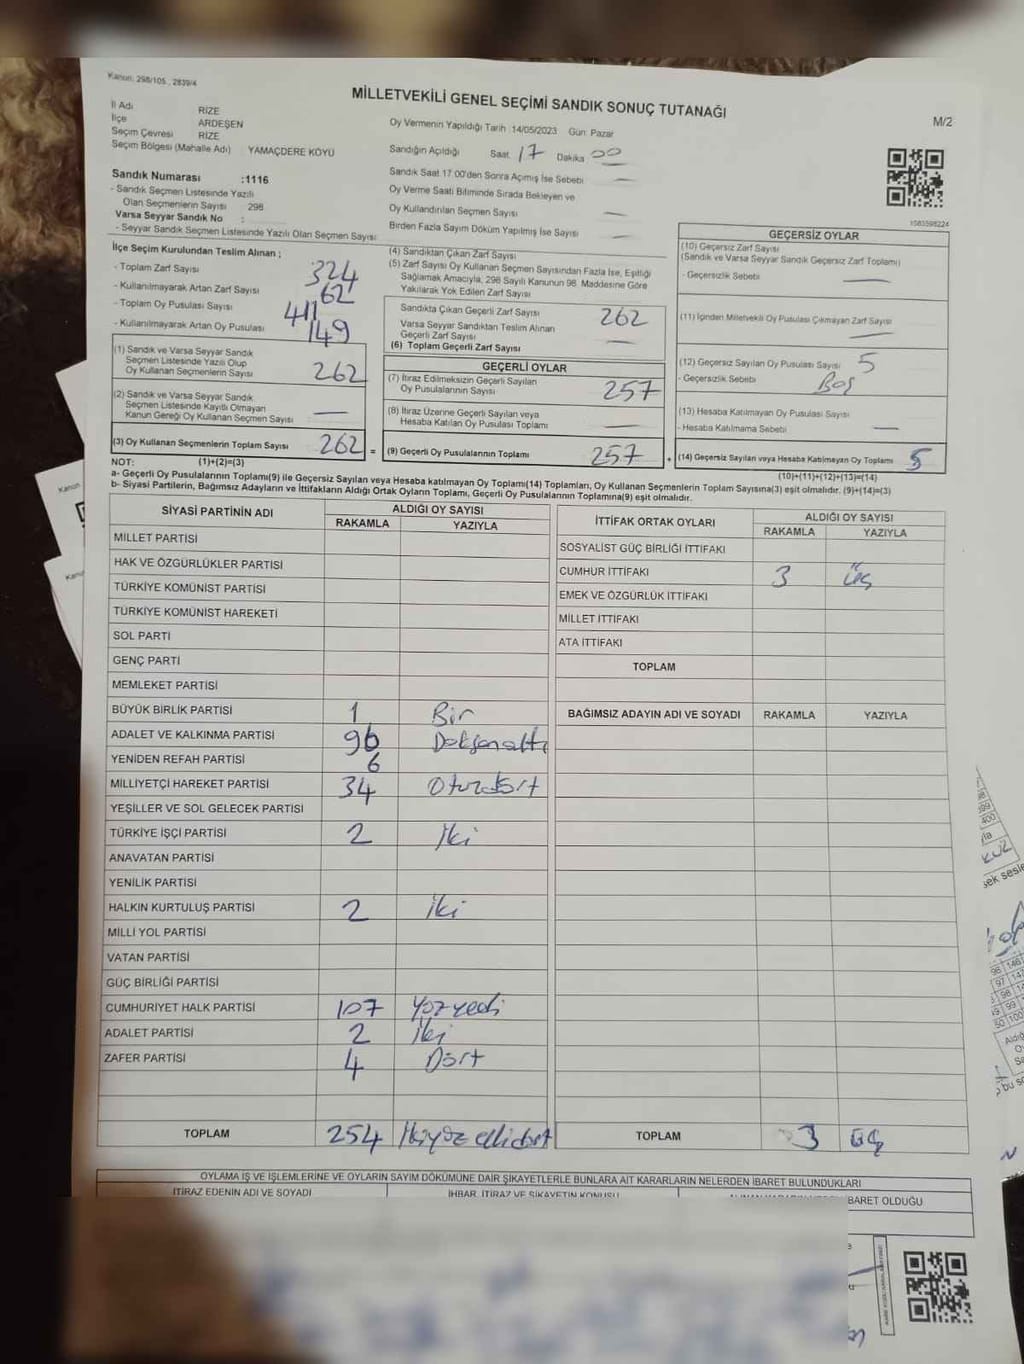 Kanun: 298/105., 2839/4
MİLLETVEKİLİ GENEL SEÇİMİ SANDIK SONUÇ TUTANAĞI
M/2
İl Adı RİZE
İlçe ARDEŞEN
Seçim Çevresi RİZE
Seçim Bölgesi (Mahalle Adı) YAMAÇDERE KÖYÜ
Sandık Numarası :1116
- Sandık Seçmen Listesinde Yazılı
Olan Seçmenlerin Sayısı 298
Varsa Seyyar Sandık No :
- Seyyar Sandık Seçmen Listesinde Yazılı Olan Seçmen Sayısı:
Oy Vermenin Yapıldığı Tarih :14/05/2023 Gün: Pazar
Sandığın Açıldığı Saat 17 Dakika 00
Sandık Saat 17.00'den Sonra Açmış İse Sebebi —
Oy Verme Saati Bitiminde Sırada Bekleyen ve
Oy Kullandırılan Seçmen Sayısı —
Birden Fazla Sayım Döküm Yapılmış İse Sayısı —
1583598224
İlçe Seçim Kurulundan Teslim Alınan ;
- Toplam Zarf Sayısı 324
- Kullanılmayarak Artan Zarf Sayısı 62
- Toplam Oy Pusulası Sayısı 411
- Kullanılmayarak Artan Oy Pusulası 149
(1) Sandık ve Varsa Seyyar Sandık
Seçmen Listesinde Yazılı Olup
Oy Kullanan Seçmenlerin Sayısı 262
(2) Sandık ve Varsa Seyyar Sandık
Seçmen Listesinde Kayıtlı Olmayan
Kanun Gereği Oy Kullanan Seçmen Sayısı —
(3) Oy Kullanan Seçmenlerin Toplam Sayısı 262 =
(4) Sandıktan Çıkan Zarf Sayısı
(5) Zarf Sayısı Oy Kullanan Seçmen Sayısından Fazla İse, Eşitliği
Sağlamak Amacıyla, 298 Sayılı Kanunun 98. Maddesine Göre
Yakılarak Yok Edilen Zarf Sayısı
Sandıkta Çıkan Geçerli Zarf Sayısı 262
Varsa Seyyar Sandıktan Teslim Alınan
Geçerli Zarf Sayısı —
(6) Toplam Geçerli Zarf Sayısı
GEÇERLİ OYLAR
(7) İtiraz Edilmeksizin Geçerli Sayılan
Oy Pusulalarının Sayısı 257
(8) İtiraz Üzerine Geçerli Sayılan veya
Hesaba Katılan Oy Pusulası Toplamı —
(9) Geçerli Oy Pusulalarının Toplamı 257 +
GEÇERSİZ OYLAR
(10) Geçersiz Zarf Sayısı
(Sandık ve Varsa Seyyar Sandık Geçersiz Zarf Toplamı)
- Geçersizlik Sebebi —
(11) İçinden Milletvekili Oy Pusulası Çıkmayan Zarf Sayısı —
(12) Geçersiz Sayılan Oy Pusulası Sayısı 5
- Geçersizlik Sebebi Boş
(13) Hesaba Katılmayan Oy Pusulası Sayısı
- Hesaba Katılmama Sebebi —
(14) Geçersiz Sayılan veya Hesaba Katılmayan Oy Toplamı 5
NOT: (1)+(2)=(3) (10)+(11)+(12)+(13)=(14)
a- Geçerli Oy Pusulalarının Toplamı(9) ile Geçersiz Sayılan veya Hesaba katılmayan Oy Toplamı(14) Toplamları, Oy Kullanan Seçmenlerin Toplam Sayısına(3) eşit olmalıdır. (9)+(14)=(3)
b- Siyasi Partilerin, Bağımsız Adayların ve İttifakların Aldığı Ortak Oyların Toplamı, Geçerli Oy Pusulalarının Toplamına(9) eşit olmalıdır.
SİYASİ PARTİNİN ADI ALDIĞI OY SAYISI
RAKAMLA YAZIYLA
MİLLET PARTİSİ
HAK VE ÖZGÜRLÜKLER PARTİSİ
TÜRKİYE KOMÜNİST PARTİSİ
TÜRKİYE KOMÜNİST HAREKETİ
SOL PARTİ
GENÇ PARTİ
MEMLEKET PARTİSİ
BÜYÜK BİRLİK PARTİSİ 1 Bir
ADALET VE KALKINMA PARTİSİ 96 Doksanaltı
YENİDEN REFAH PARTİSİ 6
MİLLİYETÇİ HAREKET PARTİSİ 34 Otuzdört
YEŞİLLER VE SOL GELECEK PARTİSİ
TÜRKİYE İŞÇİ PARTİSİ 2 İki
ANAVATAN PARTİSİ
YENİLİK PARTİSİ
HALKIN KURTULUŞ PARTİSİ 2 İki
MİLLİ YOL PARTİSİ
VATAN PARTİSİ
GÜÇ BİRLİĞİ PARTİSİ
CUMHURİYET HALK PARTİSİ 107 Yüzyedi
ADALET PARTİSİ 2 İki
ZAFER PARTİSİ 4 Dört
TOPLAM 254 İkiyüzellidört
İTTİFAK ORTAK OYLARI ALDIĞI OY SAYISI
RAKAMLA YAZIYLA
SOSYALİST GÜÇ BİRLİĞİ İTTİFAKI
CUMHUR İTTİFAKI 3 üç
EMEK VE ÖZGÜRLÜK İTTİFAKI
MİLLET İTTİFAKI
ATA İTTİFAKI
TOPLAM
BAĞIMSIZ ADAYIN ADI VE SOYADI RAKAMLA YAZIYLA
TOPLAM 3 üç
OYLAMA İŞ VE İŞLEMLERİNE VE OYLARIN SAYIM DÖKÜMÜNE DAİR ŞİKAYETLERLE BUNLARA AİT KARARLARIN NELERDEN İBARET BULUNDUKLARI
İTİRAZ EDENİN ADI VE SOYADI İHBAR, İTİRAZ VE ŞİKAYETİN KONUSU İBARET OLDUĞU